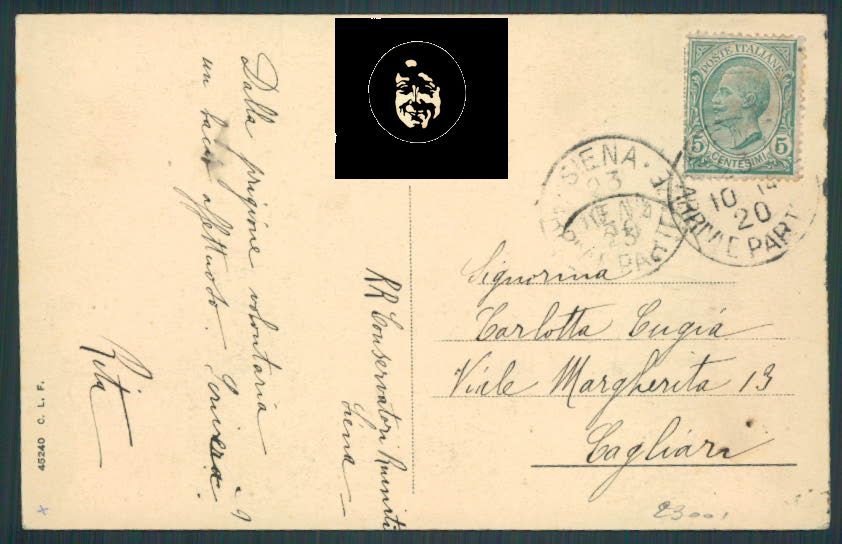 Dalla prigione volontaria
un bacio affettuoso. Scrivera.
Rita
RR Conservatori Riuniti
Siena
45240 C. L. F.
POSTE ITALIANE
5 CENTESIMI 5
SIENA
23
SIENA
ARRIVI E PARTENZE
10 14
20
ARRIVI E PART
Signorina
Carlotta Cugia
Viale Margherita 13
Cagliari
23001